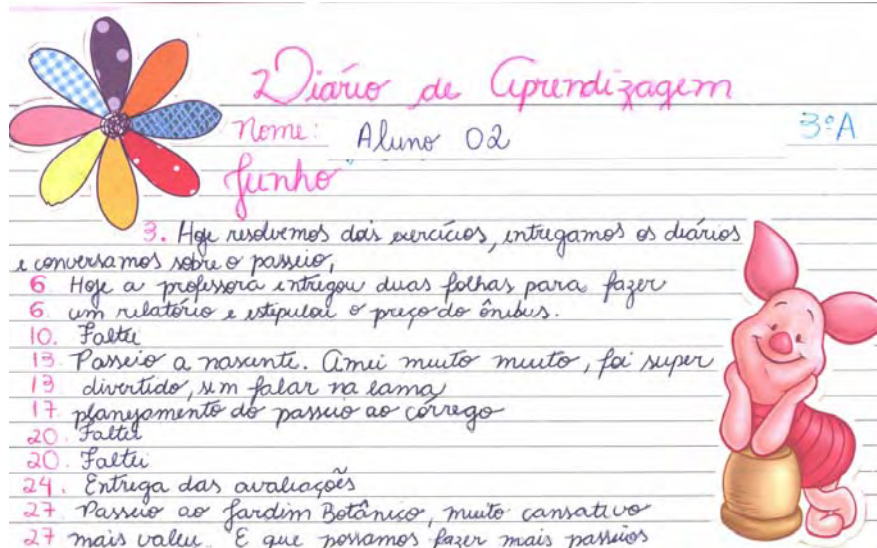 Diário de Aprendizagem
Nome: Aluno 02 3ºA
Junho
3. Hoje resolvemos dois exercícios, entregamos os diários
e conversamos sobre o passeio,
6 Hoje a professora entregou duas folhas para fazer
6. um relatório e estipulai o preço do ônibus.
10. Faltei
13 Passeio a nascente. Amei muito muito, foi super
13 divertido, sem falar na lama
17. planejamento do passeio ao córrego
20. Faltei
20. Faltei
24. Entrega das avaliações
27 Passeio ao Jardim Botânico, muito cansativo
27 mais valeu. E que possamos fazer mais passeios